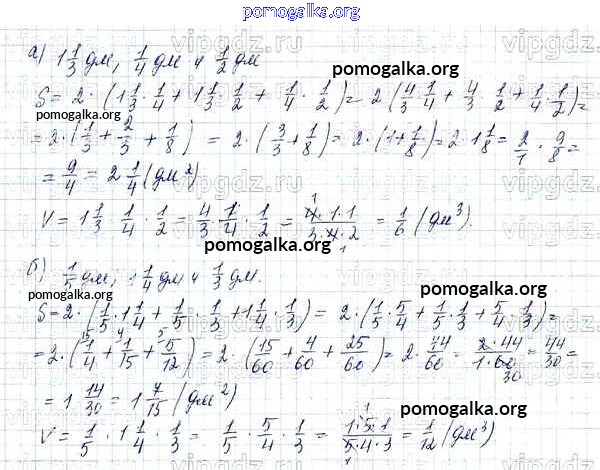 pomogalka.org
а) 1 1/3 дм, 1/4 дм и 1/2 дм
pomogalka.org
S = 2 · (1 1/3 · 1/4 + 1 1/3 · 1/2 + 1/4 · 1/2) = 2 (4/3 · 1/4 + 4/3 · 1/2 + 1/4 · 1/2) =
pomogalka.org
= 2 · (1/3 + 2/3 + 1/8) = 2 · (3/3 + 1/8) = 2 · (1 + 1/8) = 2 · 1 1/8 = 2/1 · 9/8 =
= 9/4 = 2 1/4 (дм²)
pomogalka.org
V = 1 1/3 · 1/4 · 1/2 = 4/3 · 1/4 · 1/2 = 4·1·1/3·4·2 = 1/6 (дм³).
pomogalka.org
б) 1/5 дм, 1 1/4 дм и 1/3 дм.
pomogalka.org
pomogalka.org
S = 2 · (1/5 · 1 1/4 + 1/5 · 1/3 + 1 1/4 · 1/3) = 2 · (1/5 · 5/4 + 1/5 · 1/3 + 5/4 · 1/3) =
= 2 · (1/4 + 1/15 + 5/12) = 2 · (15/60 + 4/60 + 25/60) = 2 · 44/60 = 2·44/1·60 = 44/30 =
= 1 14/30 = 1 7/15 (дм²)
pomogalka.org
V = 1/5 · 1 1/4 · 1/3 = 1/5 · 5/4 · 1/3 = 1·5·1/5·4·3 = 1/12 (дм³)
pomogalka.org
vipgdz.ru